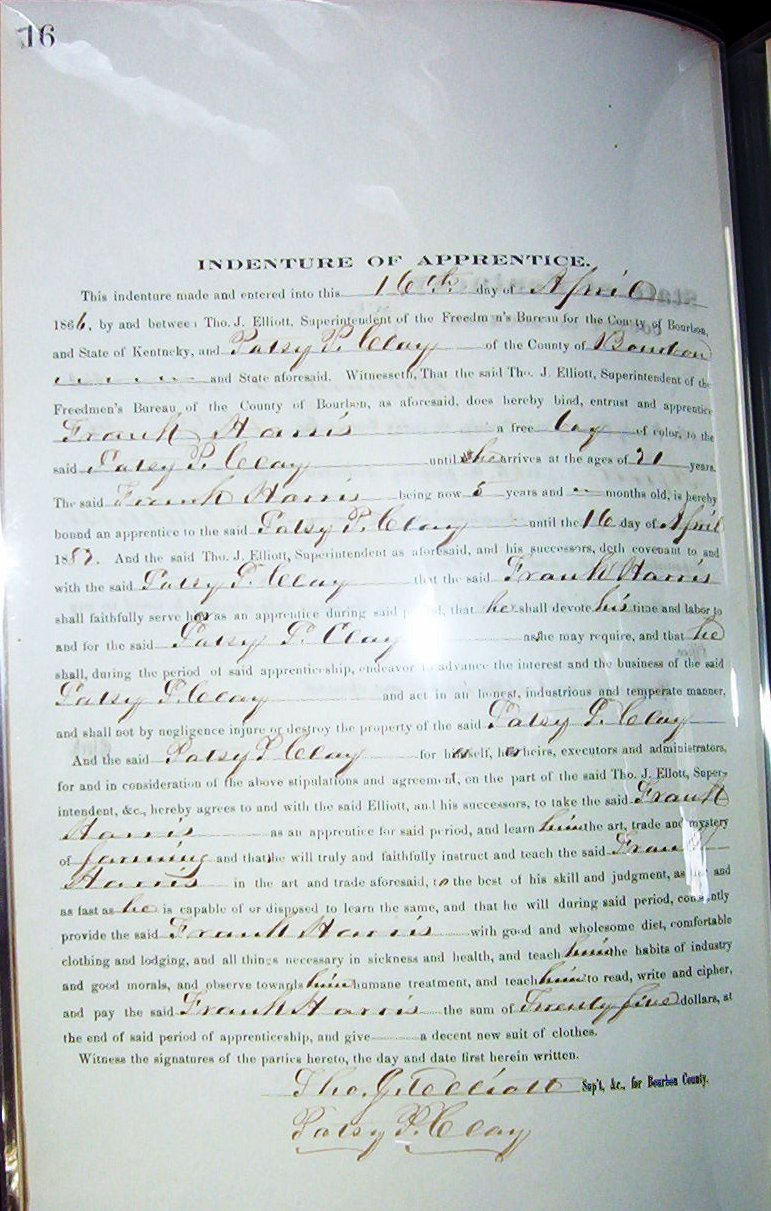 16
INDENTURE OF APPRENTICE.
This indenture made and entered into this 16th day of April
1866, by and between Tho. J. Elliott, Superintendent of the Freedmen's Bureau for the County of Bourbon,
and State of Kentucky, and Patsy P. Clay of the County of Bourbon
and State aforesaid. Witnesseth, That the said Tho. J. Elliott, Superintendent of the
Freedmen's Bureau of the County of Bourbon, as aforesaid, does hereby bind, entrust and apprentice
Frank Harris a free boy of color, to the
said Patsy P. Clay until he arrives at the ages of 21 years.
The said Frank Harris being now 5 years and — months old, is hereby
bound an apprentice to the said Patsy P. Clay until the 16 day of April
188 . And the said Tho. J. Elliott, Superintendent as aforesaid, and his successors, doth covenant to and
with the said Patsy P. Clay that the said Frank Harris
shall faithfully serve her as an apprentice during said period, that he shall devote his time and labor to
and for the said Patsy P. Clay as she may require, and that he
shall, during the period of said apprenticeship, endeavor to advance the interest and the business of the said
Patsy P. Clay and act in an honest, industrious and temperate manner,
and shall not by negligence injure or destroy the property of the said Patsy P. Clay
And the said Patsy P Clay for herself, her heirs, executors and administrators,
for and in consideration of the above stipulations and agreement, on the part of the said Tho. J. Ellott, Super-
intendent, &c., hereby agrees to and with the said Elliott, and his successors, to take the said Frank
Harris as an apprentice for said period, and learn him the art, trade and mystery
of farming and that he will truly and faithfully instruct and teach the said Frank
Harris in the art and trade aforesaid, to the best of his skill and judgment, as and
as fast as he is capable of or disposed to learn the same, and that he will during said period, constantly
provide the said Frank Harris with good and wholesome diet, comfortable
clothing and lodging, and all things necessary in sickness and health, and teach him the habits of industry
and good morals, and observe towards him humane treatment, and teach him to read, write and cipher,
and pay the said Frank Harris the sum of Twenty five dollars, at
the end of said period of apprenticeship, and give a decent new suit of clothes.
Witness the signatures of the parties hereto, the day and date first herein written.
Tho. J. Elliott Sup't, &c., for Bourbon County.
Patsy P. Clay